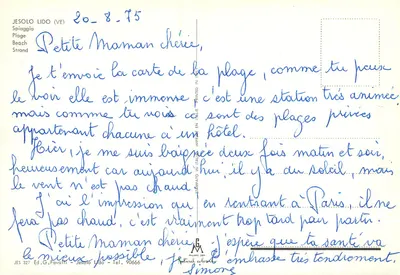 JESOLO LIDO (VE)
Spiaggia
Plage
Beach
Strand
20-8-75
Petite Maman chérie,
Je t'envoie la carte de la plage, comme tu peux
le voir elle est immense, c'est une station très animée,
mais comme tu vois ce sont des plages privées
appartenant chacune à un hôtel.
Hier, je me suis baignée deux fois matin et soir,
heureusement car aujourd'hui, il y a du soleil, mais
le vent n'est pas chaud.
J'ai l'impression qu'en rentrant à Paris, il ne
fera pas chaud, c'est vraiment trop tard pour partir.
Petite Maman chérie, j'espère que ta santé va
le mieux possible, je t'embrasse très tendrement.
Simone